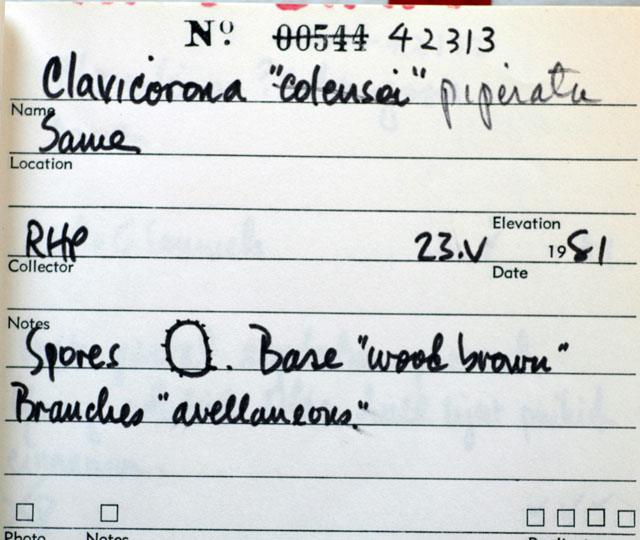 Nº 00544 42313
Clavicorona "colensoi" piperata
Name
Same
Location
Elevation
RHP 23.V 1981
Collector Date
Notes
Spores . Base "wood brown"
Branches "avellaneous."
Photo Notes